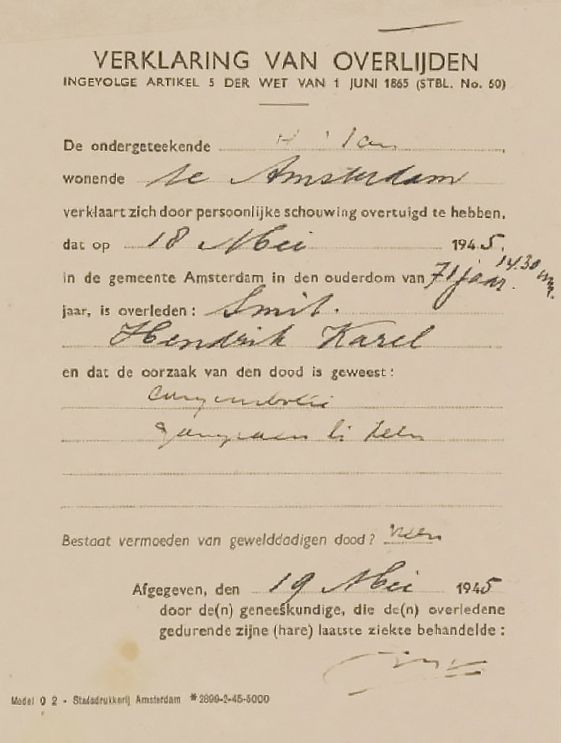 VERKLARING VAN OVERLIJDEN
INGEVOLGE ARTIKEL 5 DER WET VAN 1 JUNI 1865 (STBL. No. 60)
De ondergeteekende
wonende te Amsterdam
verklaart zich door persoonlijke schouwing overtuigd te hebben,
dat op 18 Mei 1945.
in de gemeente Amsterdam in den ouderdom van 71 jaar. 14.30
jaar, is overleden: Smit.
Hendrik Karel
en dat de oorzaak van den dood is geweest:
Bestaat vermoeden van gewelddadigen dood? neen
Afgegeven, den 19 Mei 1945
door de(n) geneeskundige, die de(n) overledene
gedurende zijne (hare) laatste ziekte behandelde:
Model O 2 - Stadsdrukkerij Amsterdam *2899-2-45-5000